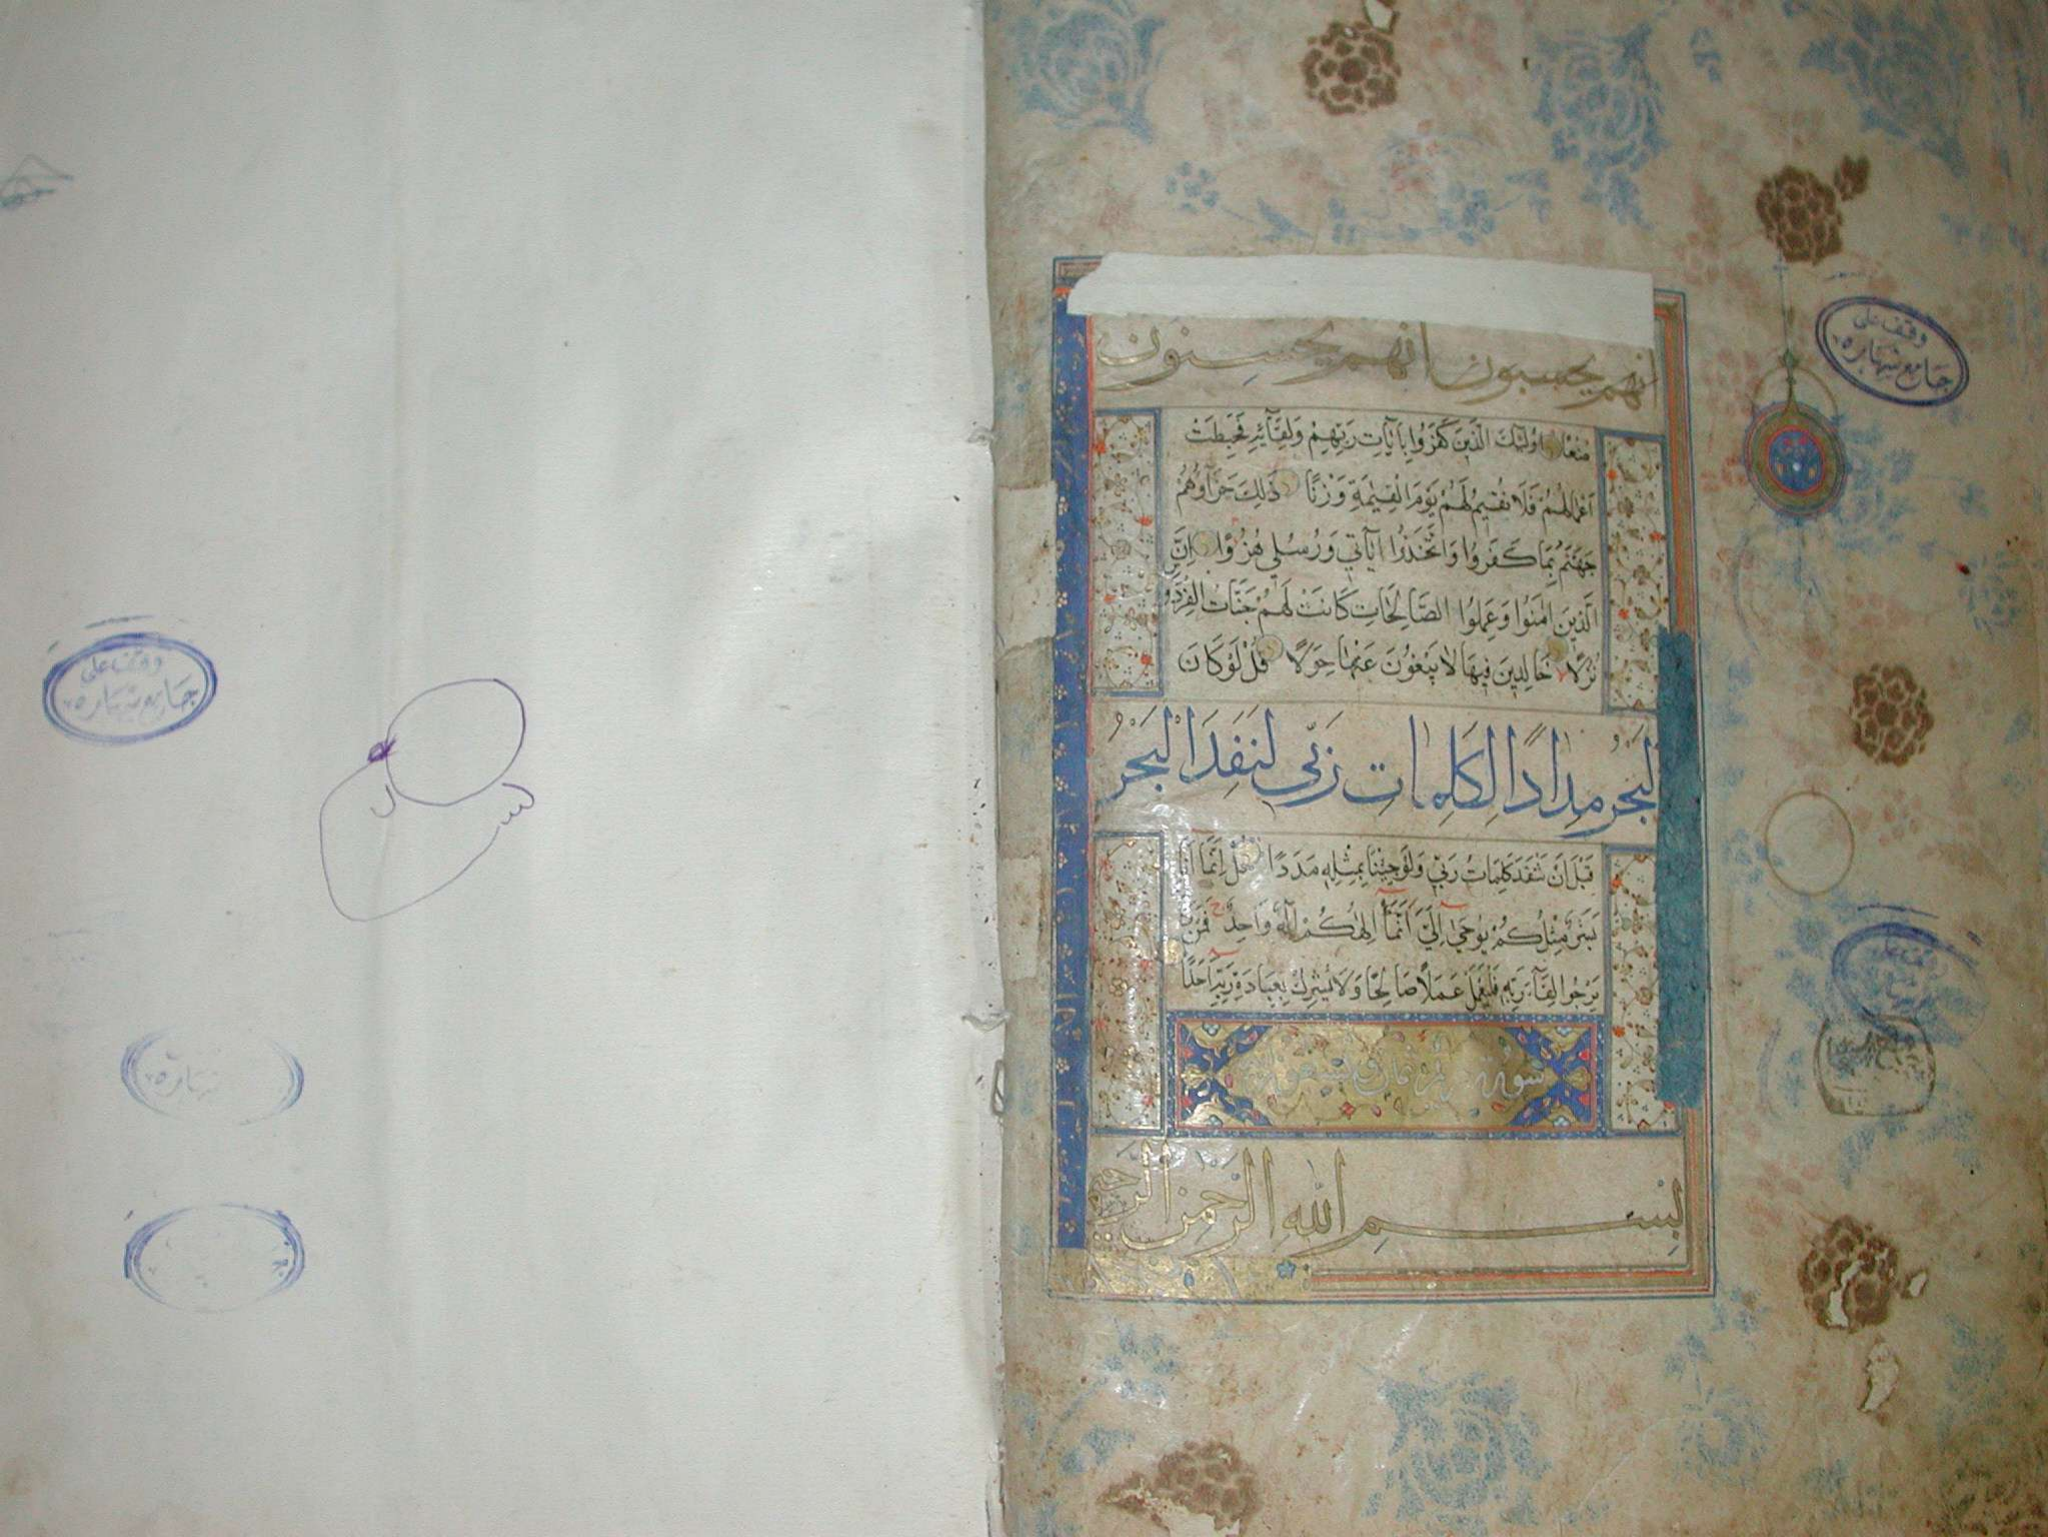 أنهم يحسبون أنهم يحسنون
صنعا اولئك الذين كفروا بايات ربهم ولقائه فحبطت
اعمالهم فلا نقيم لهم يوم القيمة وزنا ذلك جزاؤهم
جهنم بما كفروا واتخذوا اياتي ورسلي هزوا ان
الذين امنوا وعملوا الصالحات كانت لهم جنات الفردو
نزلا خالدين فيها لا يبغون عنها حولا قل لو كان
البحر مدادا لكلمات ربي لنفد البحر
قبل ان تنفد كلمات ربي ولو جئنا بمثله مددا قل انما انا
بشر مثلكم يوحى الي انما الهكم اله واحد فمن
يرجوا لقاء ربه فليعمل عملا صالحا ولا يشرك بعبادة ربه احدا
سورة
بسم الله الرحمن الرحيم
وقف على
جامع شهاره
وقف على
جامع شهاره
شهاره